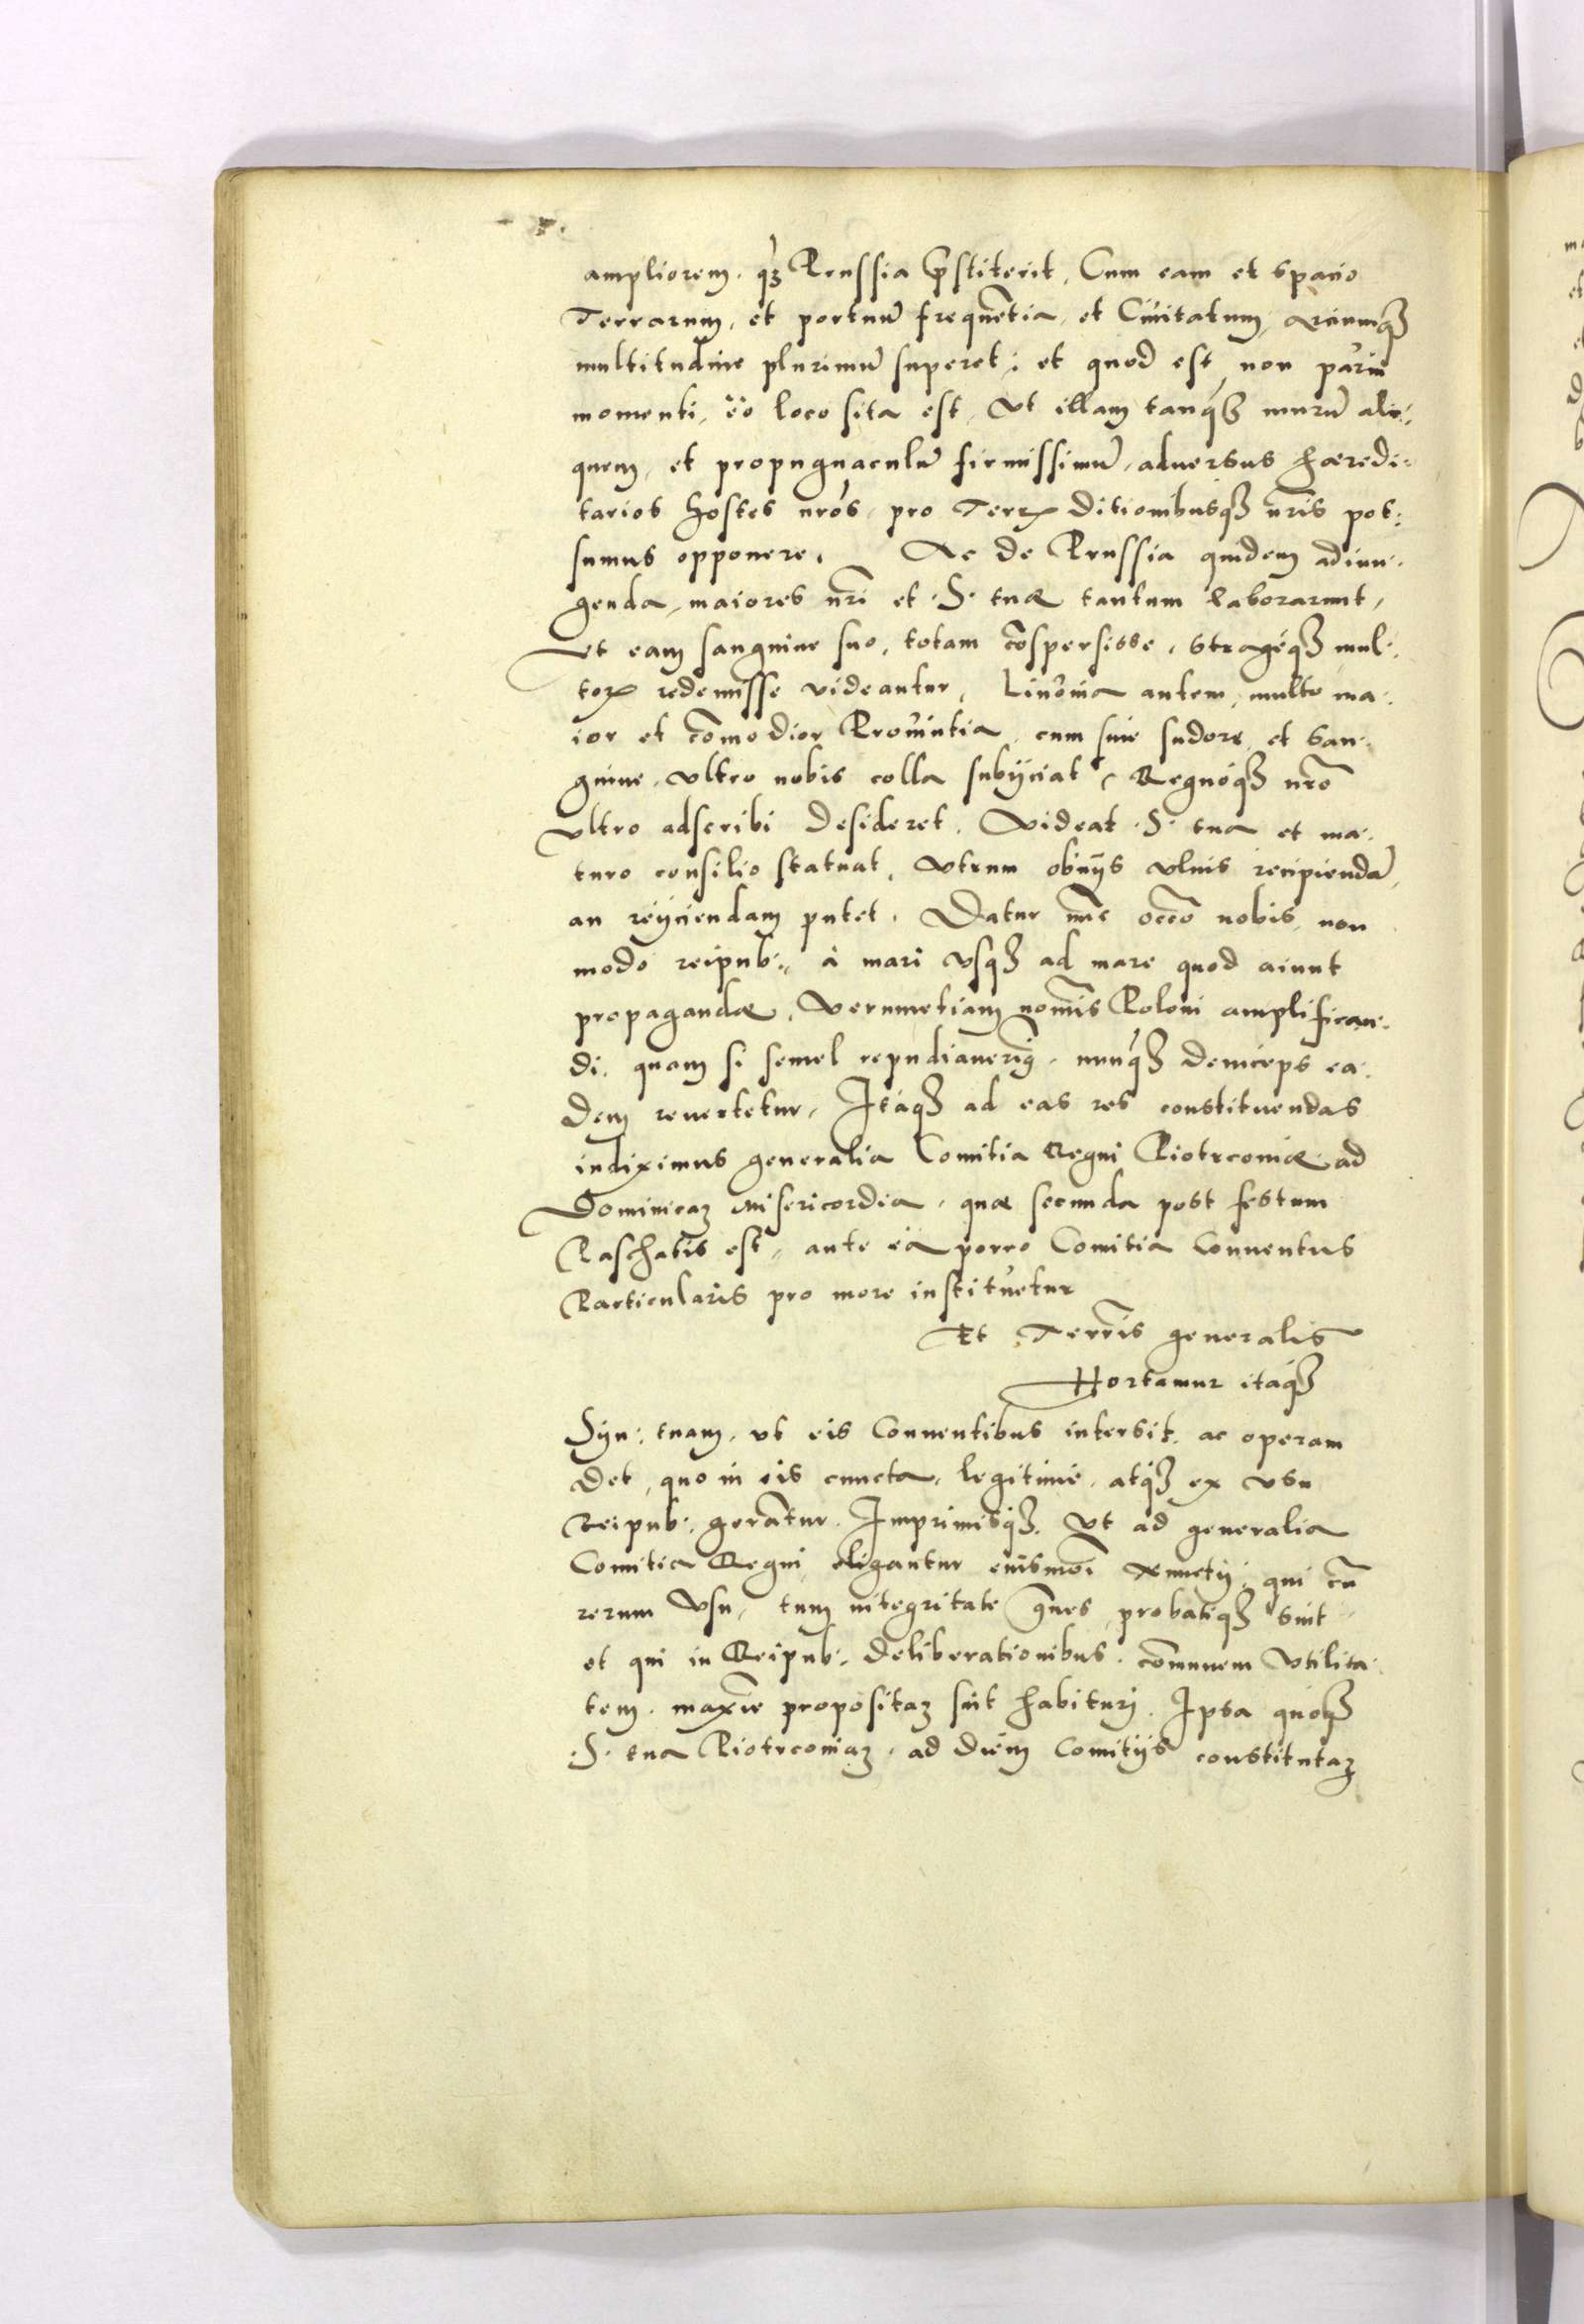 ampliorem. qȝ Prussia p̄stiterit, Cum eam et spacio
Terrarum, et portuū frequētia, et Ciuitatum, arciumqȝ
multitudine plurimū superet: et quod est non parui
momenti, eo loco sita est, Vt illam tanqȝ murū ali:
quem, et propugnaculū firmissimū, aduersus hæredi:
tarios hostes nr̄os, pro Terrꝝ ditionibusqȝ nr̄is pos:
sumus opponere. Ac de Prussia quidem adiun:
genda, maiores nr̄i et .S. tuæ tantum laborarunt,
Vt eam sanguine suo, totam cōspersisse, stragēqȝ mul:
torꝝ redemisse videantur, Liuonia autem, multo ma:
ior et cōmodior Prouintia, cum sine sudore et san:
guine, vltro nobis colla subijciat, Regnoqȝ nr̄o
vltro adscribi desideret, Videat .S. tua et ma:
turo consilio statuat, Vtrum obuijs vlnis recipiendā,
an reijciendam putet. Datur nūc occō nobis, non
modo reipub:, à mari vsqȝ ad mare quod aiunt
propagandæ, Verumetiam nomīs Poloni amplifican:
di. quam si semel repudiauerim9, nunqȝ deinceps ea:
dem reuertetur, Itaqȝ ad eas res constituendas
indiximus generalia Comitia Regni Piotrconiæ, ad
Dominicaȝ Misericordia, quæ secunda post festum
Paschatis est, ante ea porro Comitia Conuentus
Particularis pro more instituetur
Et Terrīs generalis
Hortamur itaqȝ
Syn: tuam, vt eis Conuentibus intersit, ac operam
det, quo in eis cuncta, legitime, atqȝ ex vsu
Reipub:, gerātur. Imprimisqȝ, Vt ad generalia
Comitia Regni eligantur eiusmōi Nunctij, qui cū
rerum vsu, tum integritate ḡues, probatiqȝ sint
et qui in Reipub:, deliberationibus, cōmunem vtilita:
tem, maxīe propositaȝ sint habituri. Ipsa quoqȝ
.S. tua Piotrconiaȝ, ad diem Comitijs constitutaȝ